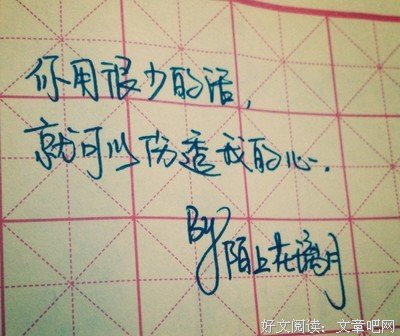 你用很少的话,
就可以伤透我的心.
By陌上在离月
好文阅读：文章吧网